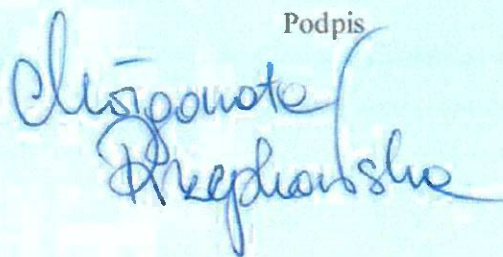 Podpis
Małgorzata
Rzepkowska